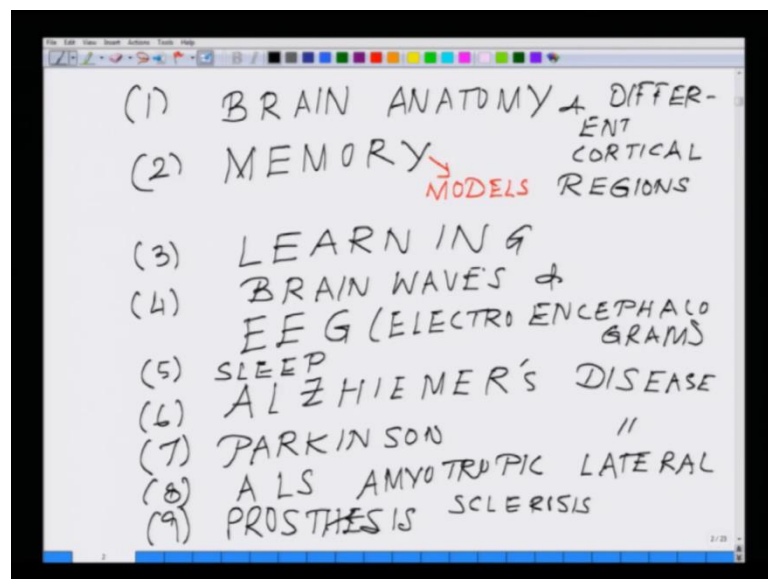 File Edit View Insert Actions Tools Help
(1) BRAIN ANATOMY & DIFFER-
ENT
CORTICAL
REGIONS
(2) MEMORY
MODELS
(3) LEARNING
(4) BRAIN WAVES &
EEG (ELECTRO ENCEPHALO
GRAMS
(5) SLEEP
(6) ALZHIEMER'S DISEASE
(7) PARKINSON "
(8) ALS AMYOTROPIC LATERAL
SCLERISIS
(9) PROSTHESIS
2
2/23